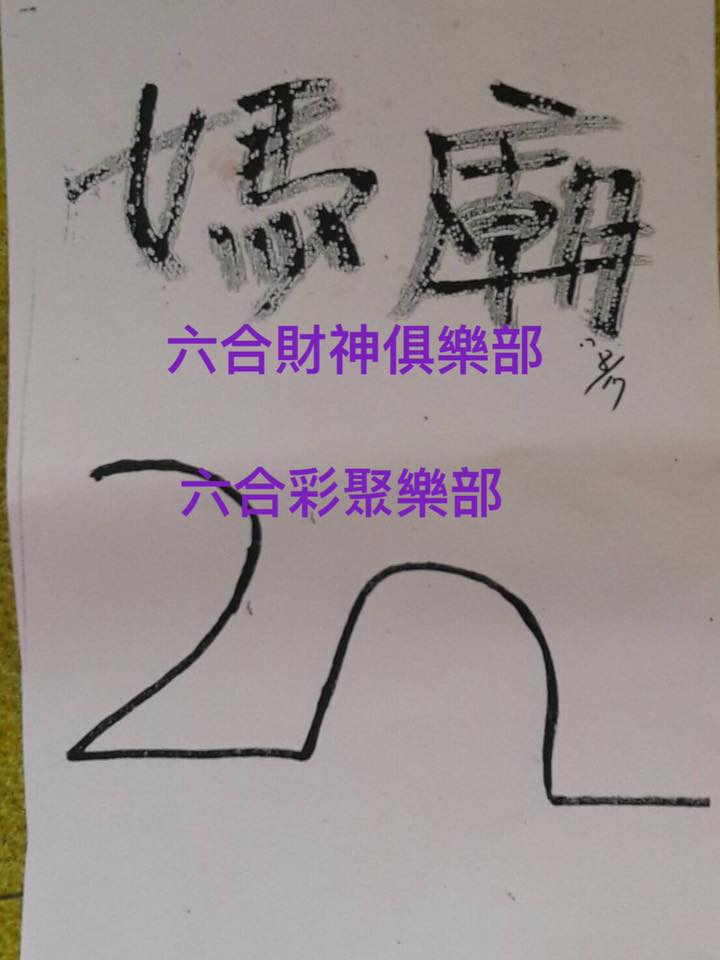 媽廟
六合財神俱樂部
8/17
六合彩聚樂部
2